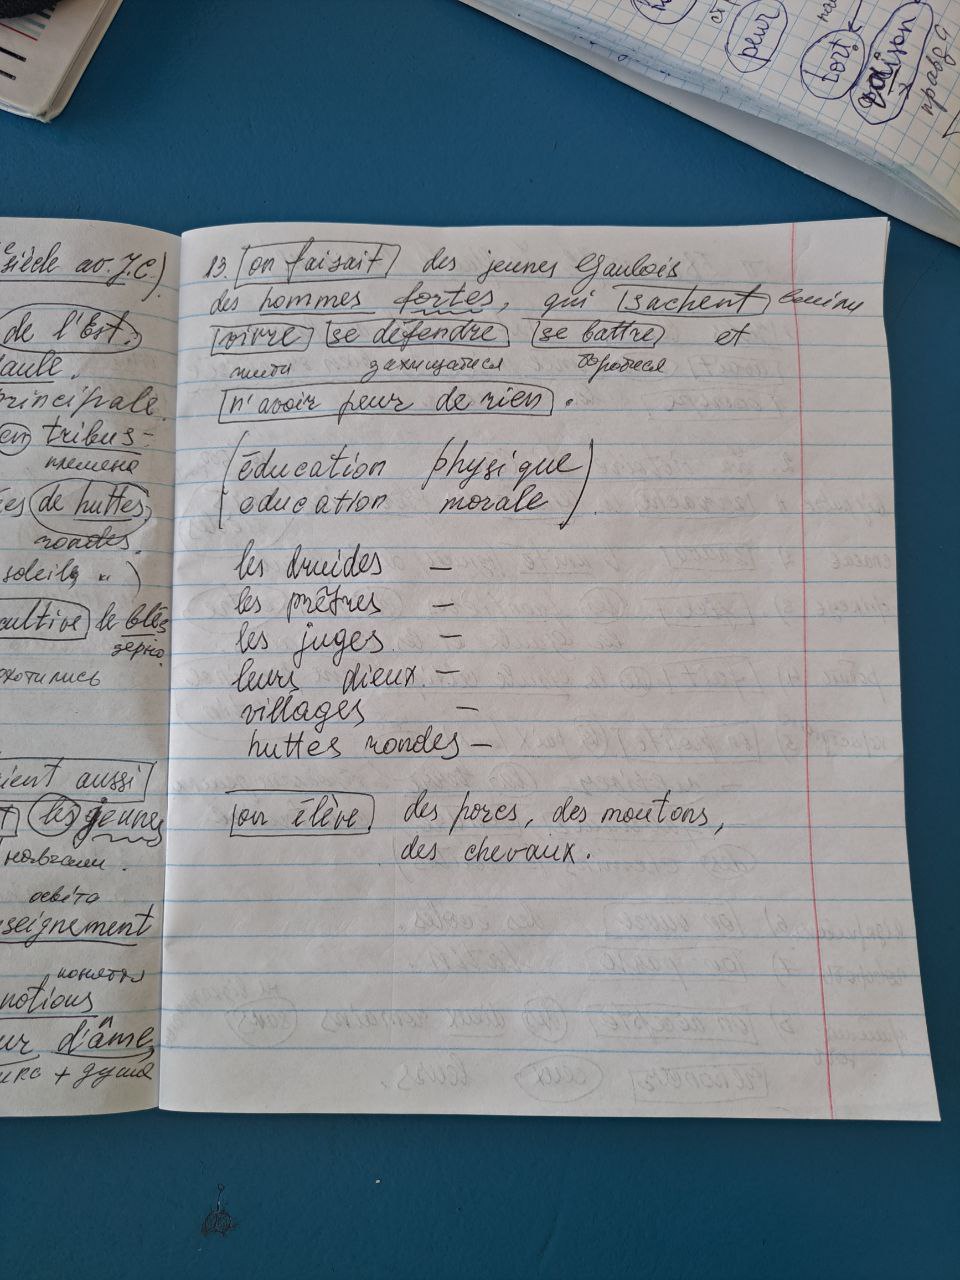 peur
tort
raison
правда
siècle av. J.C.)
de l'Est.
aule.
principale
en tribus-
племена
de huttes,
rondes.
soleil
cultive le blés
зерно
охотились
aient aussi
les jeunes
навчали.
освіта
seignement
поняття
notions
ur d'âme,
+ душа
13. on faisait des jeunes Gaulois
des hommes fortes, qui sachent вміли
vivre se défendre se battre et
жити захищатися боротися
n'avoir peur de rien.
(éducation physique
education morale)
les druides –
les prêtres –
les juges –
leurs dieux –
villages –
huttes rondes –
on élève des porcs, des moutons,
des chevaux.